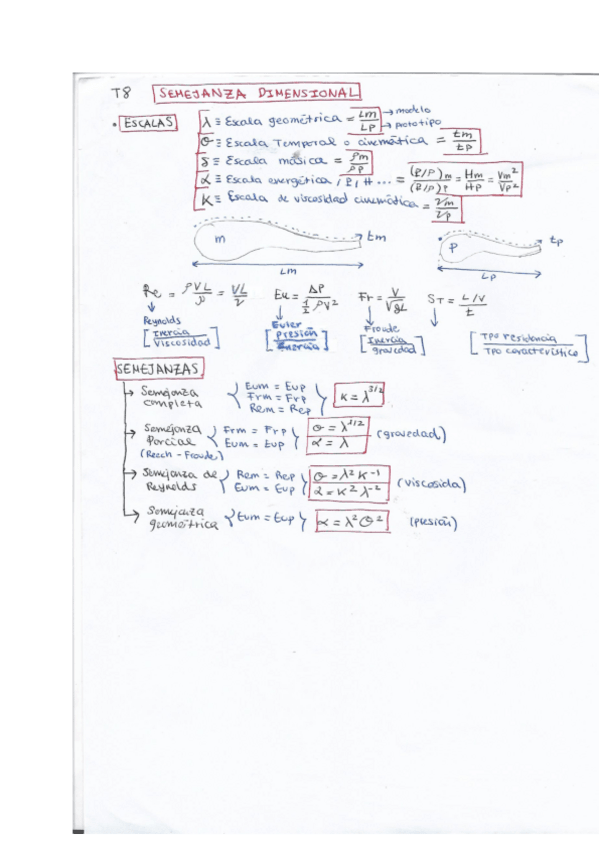 T8 SEMEJANZA DIMENSIONAL
• ESCALAS
λ ≡ Escala geométrica = Lm/Lp → modelo → prototipo
θ ≡ Escala Temporal o cinemática = tm/tp
δ ≡ Escala másica = ρm/ρp
α ≡ Escala energética, P, H ... = (P/ρ)m/(P/ρ)p = Hm/Hp = Vm²/Vp²
K ≡ Escala de viscosidad cinemática = νm/νp
m tm P tp
Lm Lp
Re = ρVL/μ = VL/ν Eu = ΔP/½ρV² Fr = V/√gL ST = L/V/t
Reynolds [Inercia/Viscosidad] Euler [Presión/Energía] Froude [Inercia/gravedad] [Tpo residencia/Tpo característico]
SEMEJANZAS
→ Semejanza completa { Eum = Eup Frm = Frp Rem = Rep } K = λ^3/2
→ Semejanza Parcial (Reech - Froude) { Frm = Frp Eum = Eup } θ = λ^1/2 α = λ (gravedad)
→ Semejanza de Reynolds { Rem = Rep Eum = Eup } θ = λ² K⁻¹ α = K² λ⁻² (viscosida)
→ Semejanza geométrica { Eum = Eup } α = λ² θ² (presión)